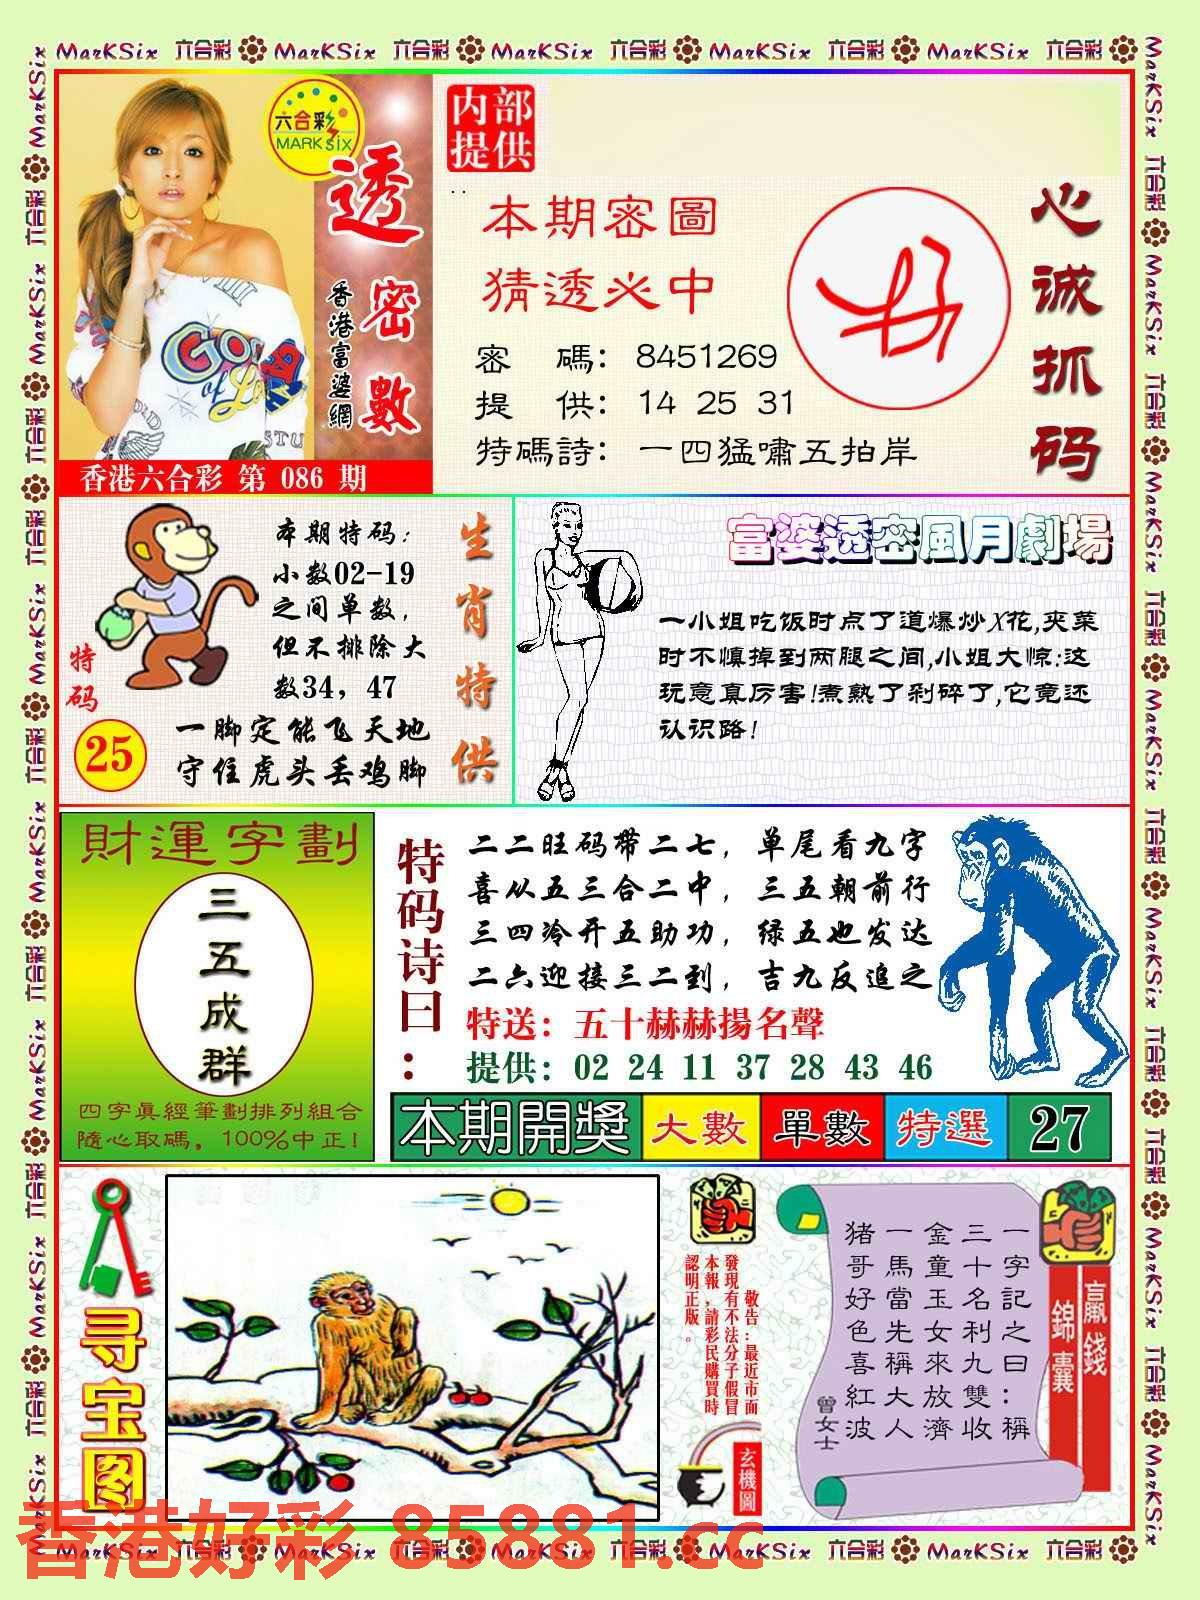 MarKSix 六合彩 MarKSix 六合彩 MarKSix 六合彩 MarKSix 六合彩 MarKSix 六合彩
六合彩
MARK SIX
透密數
香港富婆網
香港六合彩 第 086 期
内部
提供
本期密圖
猜透必中
密 碼: 8451269
提 供: 14 25 31
特碼詩: 一四猛嘯五拍岸
心诚抓码
特码
25
本期特码:
小数02-19
之间单数,
但不排除大
数34, 47
一脚定能飞天地
守住虎头丢鸡脚
生肖特供
富婆透密風月劇場
一小姐吃饭时点了道爆炒X花,夹菜
时不慎掉到两腿之间,小姐大惊:这
玩意真厉害!煮熟了剁碎了,它竟还
认识路!
財運字劃
三五成群
四字真經筆劃排列組合
隨心取碼, 100%中正!
特码诗曰:
二二旺码带二七, 单尾看九字
喜从五三合二中, 三五朝前行
三四冷开五助功, 绿五也发达
二六迎接三二到, 吉九反追之
特送: 五十赫赫揚名聲
提供: 02 24 11 37 28 43 46
本期開獎 大數 單數 特選 27
寻宝图
敬告:最近市面
發現有不法分子假冒
本報,請彩民購買時
認明正版。
玄機圖
一字記之曰:稱
三十名利九雙收
金童玉女來放濟
一馬當先稱大人
猪哥好色喜紅波
曾女士
贏錢
錦囊
香港好彩 85881.cc
MarKSix 六合彩 MarKSix 六合彩 MarKSix 六合彩 MarKSix 六合彩 MarKSix 六合彩